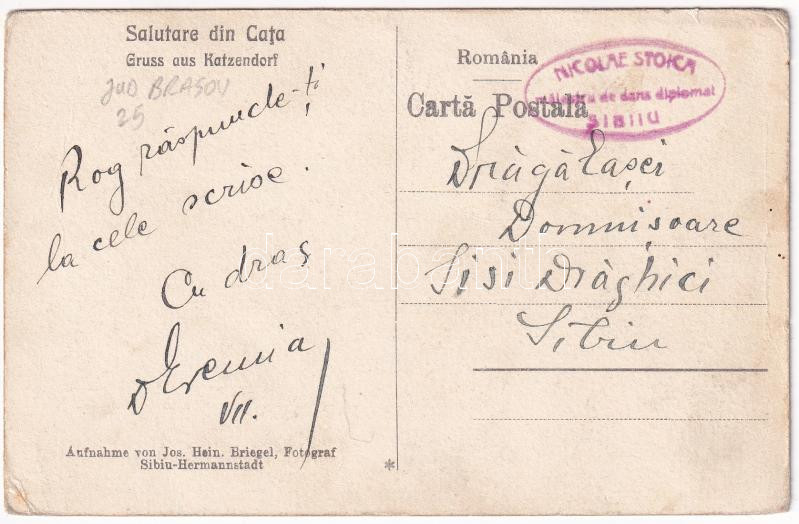 Salutare din Caţa
Gruss aus Katzendorf
JUD BRASOV
25
Rog răspunde-ți
la cele scrise.
Cu drag
Eremia
VII.
Aufnahme von Jos. Hein. Briegel, Fotograf
Sibiu-Hermannstadt
România
Cartă Postală
NICOLAE STOICA
măiestru de dans diplomat
SIBIIU
Drăgălașei
Domnișoare
Sisi Drăghici
Sibiu
darabanth